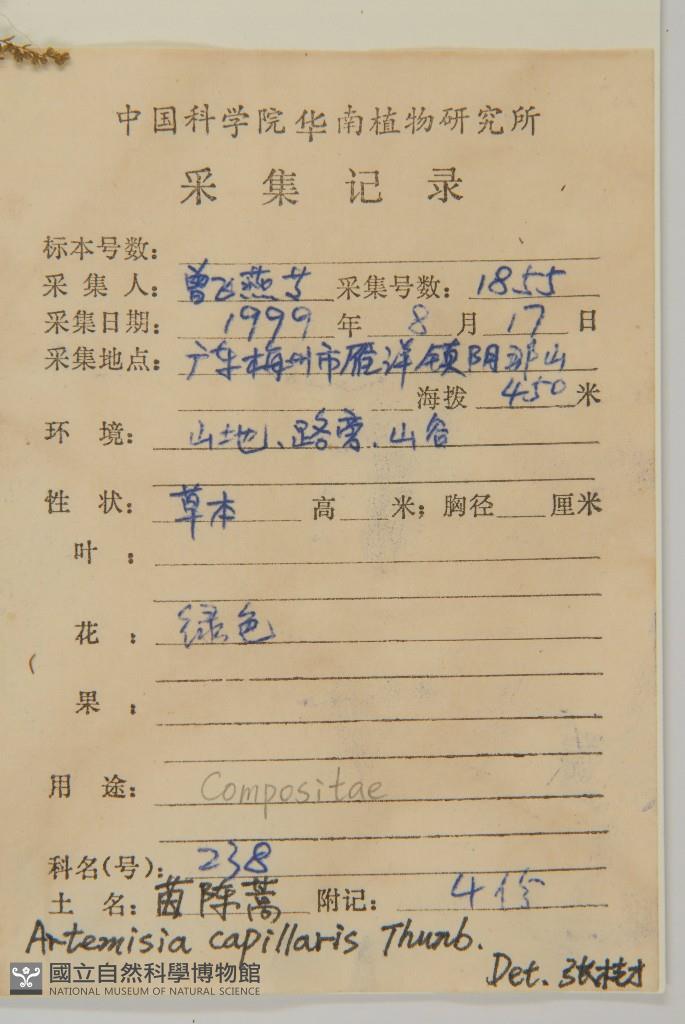 中国科学院华南植物研究所
采集记录
标本号数：
采集人：曾飞燕等 采集号数：1855
采集日期：1999年8月17日
采集地点：广东梅州市雁洋镇阴那山
海拨 450 米
环境：山地、路旁、山谷
性状：草本 高 米；胸径 厘米
叶：
花：绿色
果：
用途：Compositae
科名(号)：238
土名：茵陈蒿 附记：4份
Artemisia capillaris Thunb.
Det. 张桂才
國立自然科學博物館
NATIONAL MUSEUM OF NATURAL SCIENCE